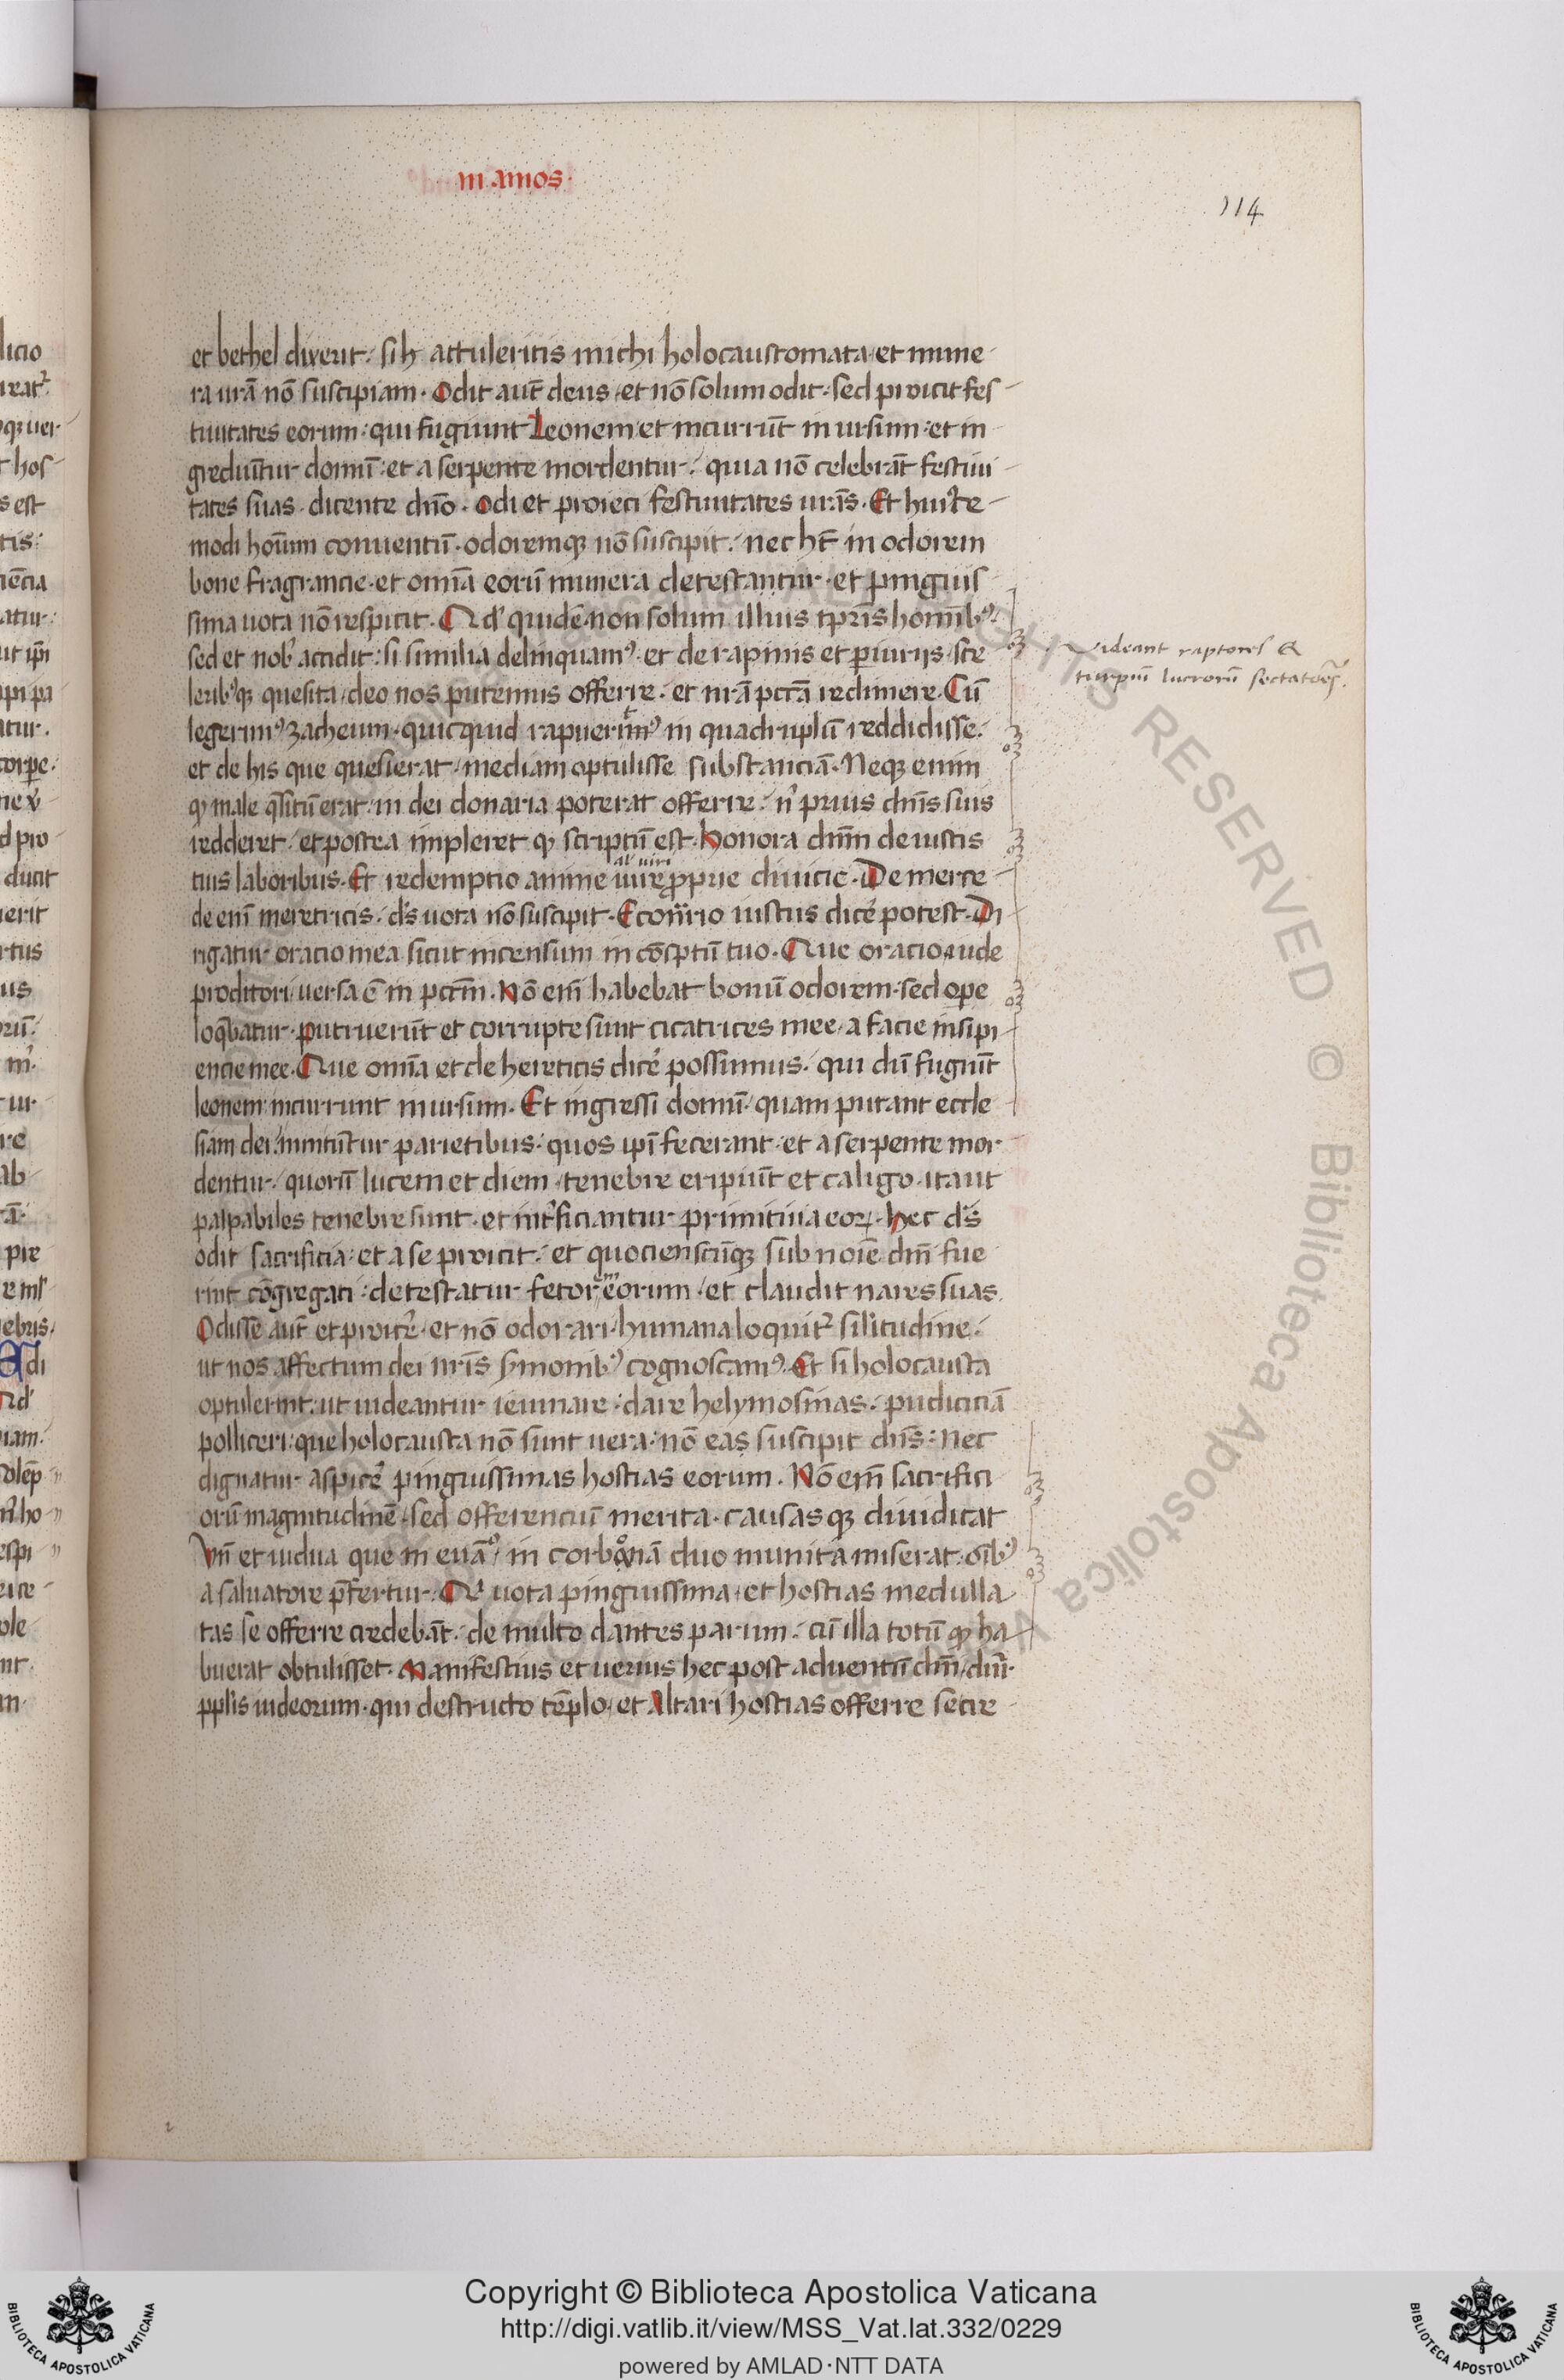 in amos
114
et bethel dixerit: si h attuleritis michi holocaustomata et mune
ra urā nō suscipiam. Odit aut̄ deus et nō solum odit sed proicit fes
tiuitates eorum: qui fugiunt Leonem et incurrūt in ursum: et in
grediūtur domū: et a serpente mordentur: quia nō celebrāt festiui
tates suas. dicente dn̄o. Odi et proieci festiuitates urās. Et
modi conuentū. odoremqꝫ nō suscipit: nec ht̄ in odorem
bone fragrancie. et omīa eorū munera detestantur. et pinguis
sima uota nō respicit. quidē non solum illius tp̄ris homībꝰ
sed et nobʼ accidit: si similia delinquamꝰ et de rapinis et piurijs. sce
leribꝰqꝫ quesita deo nos putemus offerre. et nrā pctā redimere. Cū
legerimꝰ zacheum. quicquid in quadruplū reddidisse:
et de his que quesierat mediam optulisse substanciā. Neqꝫ enim
ꝙ male q̄sitū erat in dei donaria poterat offerre: nʼ prius dn̄is suis
redderet et postea impleret ꝙ scriptū est. Honora dn̄m de iustis
al' uiri
tuis laboribus. Et redemptio anime uire proprie diuicie. De merce
de enī meretricis: d̄s uota nō suscipit. Econ̄rio iustus dicē potest. Di
rigatur oracio mea sicut incensum in cōsptū tuo. Que oracio iude
proditori uersa ē in pctm̄. Nō enī habebat bonū odorem. sed ope
loq̄batur. putruerūt et corrupte sunt cicatrices mee. a facie insipi
encie mee. Que omīa et de hereticis dicē possimus. qui dū fugiūt
leonem incurrunt in ursum. Et ingressi domū quam putant eccle
siam dei: innitūtur parietibus. quos ip̄i fecerant. et a serpente mor
dentur. quorū lucem et diem tenebre eripiūt et caligo. ita ut
palpabiles tenebre sunt. et int̄ficiantur primitiua eoꝝ. hec d̄s
odit sacrificia: et a se proicit: et quocienscūqꝫ sub noīe dn̄i fue
rint cōgregati: detestatur fetorē eorum et claudit nares suas.
Odisse aut̄ et proicē et nō odorari. humana loquit̄ silitudine:
ut nos affectum dei nr̄is s̄monibꝰ cognoscamꝰ. Et si holocausta
optulerint. ut uideantur ieiunare. dare helymosinas. pudiciciā
polliceri: que holocausta nō sunt uera: nō eas suscipit dn̄s: nec
dignatur aspicē pinguissimas hostias eorum. Nō enī sacrifici
orū magnitudinē. sed offerenciū merita. causasqꝫ diiudicat
Vn̄ et uidua que in euāꝰ in corbonā duo minuta miserat. oībꝰ
a saluatore p̄fertur. uota pinguissima et hostias medulla
tas se offerre credebāt. de multo dantes parum. cū illa totū ꝙ ha
buerat obtulisset. Manifestius et uerius hec post aduentū dn̄i
pplīs iudeorum. qui destructo tēplo et Altari hostias offerre secre
Videant raptores &
turpiū lucrorū sectatores.
Copyright © Biblioteca Apostolica Vaticana
http://digi.vatlib.it/view/MSS_Vat.lat.332/0229
powered by AMLAD·NTT DATA